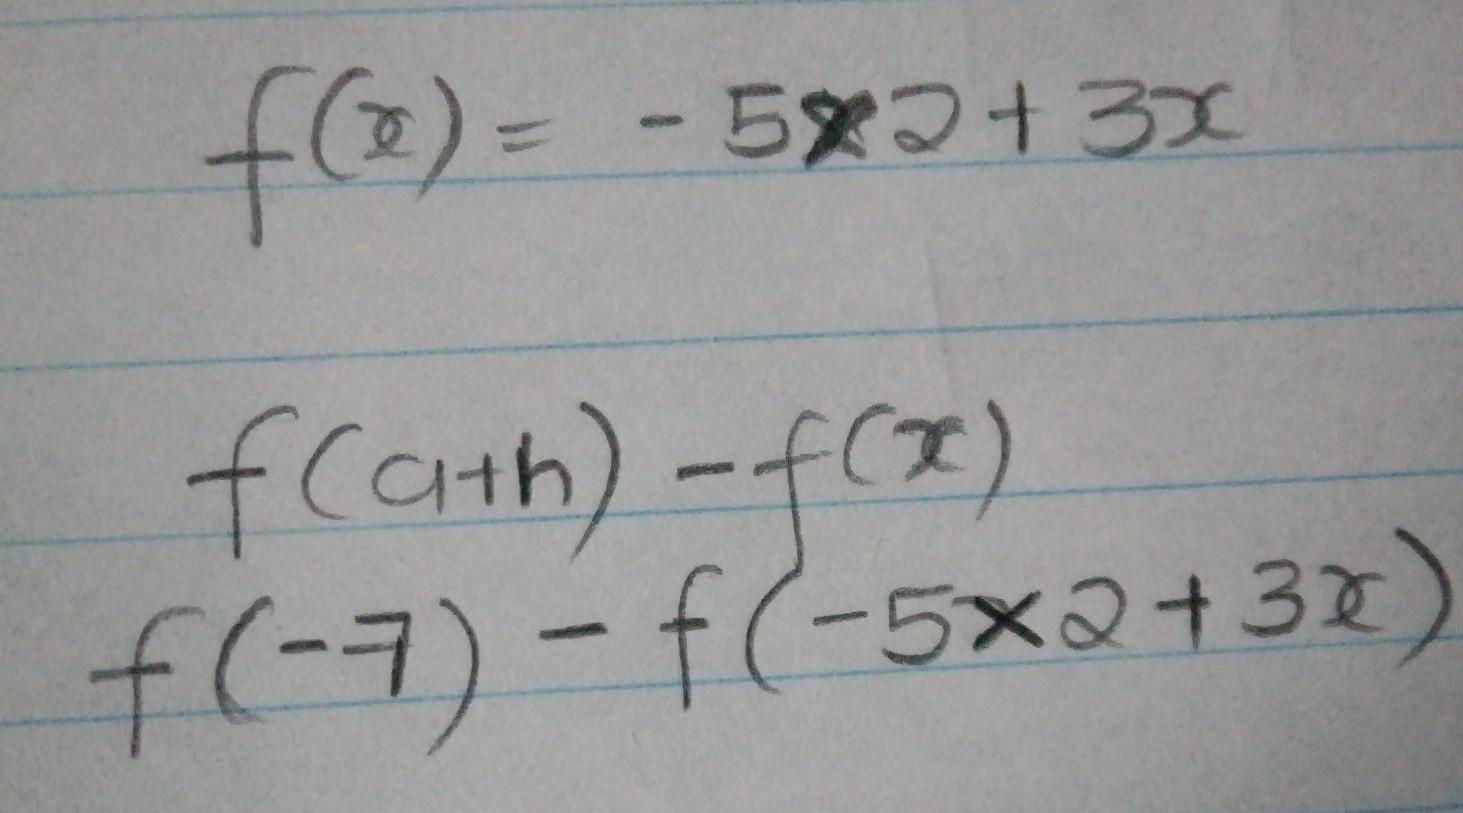 f(x) = - 5x2 + 3x
f(a+h) - f(x)
f(-7) - f(-5x2 + 3x)